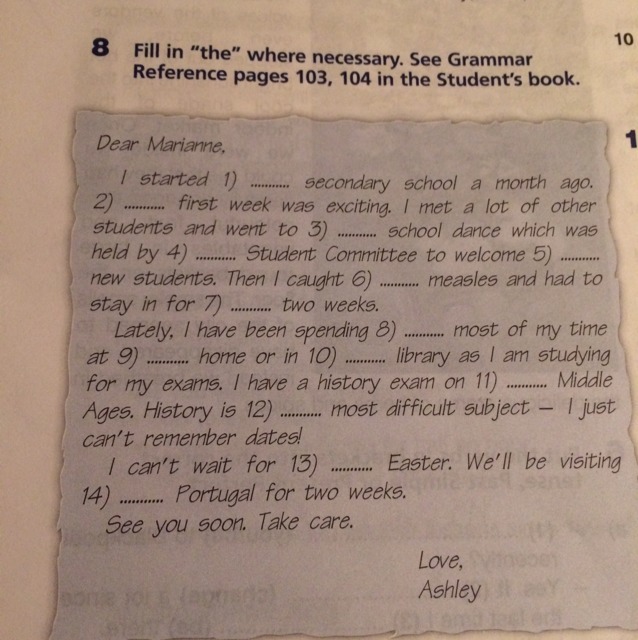 8 Fill in "the" where necessary. See Grammar
Reference pages 103, 104 in the Student's book.
10
1
Dear Marianne,
I started 1) ........... secondary school a month ago.
2) ........... first week was exciting. I met a lot of other
students and went to 3) ........... school dance which was
held by 4) ........... Student Committee to welcome 5) ...........
new students. Then I caught 6) ........... measles and had to
stay in for 7) ........... two weeks.
Lately, I have been spending 8) ........... most of my time
at 9) ........... home or in 10) ........... library as I am studying
for my exams. I have a history exam on 11) ........... Middle
Ages. History is 12) ........... most difficult subject – I just
can't remember dates!
I can't wait for 13) ........... Easter. We'll be visiting
14) ........... Portugal for two weeks.
See you soon. Take care.
Love,
Ashley